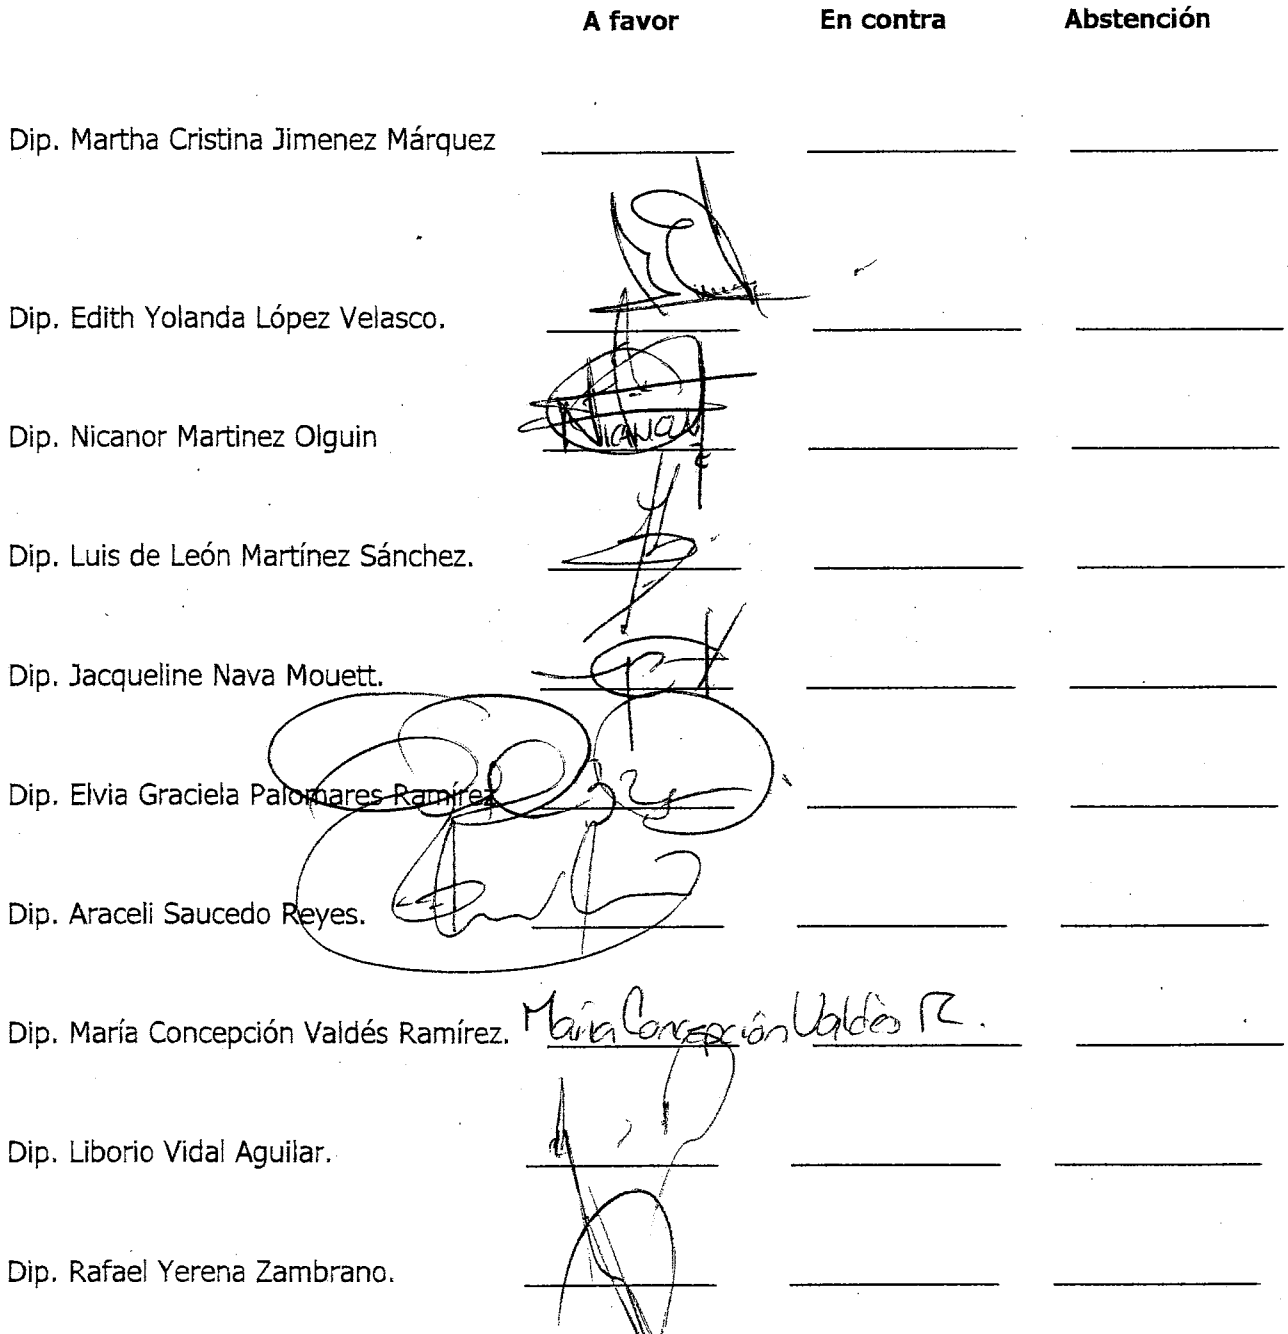 A favor En contra Abstención
Dip. Martha Cristina Jimenez Márquez
Dip. Edith Yolanda López Velasco.
Dip. Nicanor Martinez Olguin Nicanor
Dip. Luis de León Martínez Sánchez.
Dip. Jacqueline Nava Mouett.
Dip. Elvia Graciela Palomares Ramírez
Dip. Araceli Saucedo Reyes.
Dip. María Concepción Valdés Ramírez. María Concepción Valdés R.
Dip. Liborio Vidal Aguilar.
Dip. Rafael Yerena Zambrano.